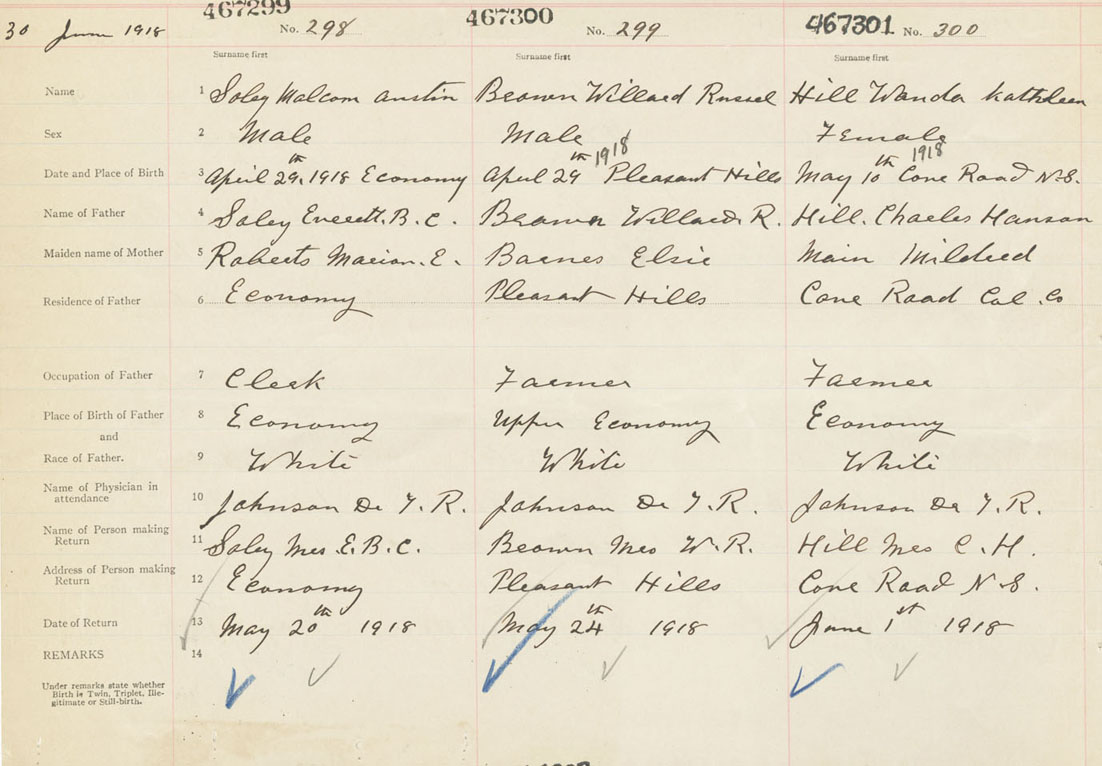 467299 467300 467301
30 June 1918 No. 298 No. 299 No. 300
Surname first Surname first Surname first
Name 1 Soley Malcom Austin Brown Willard Russel Hill Wanda Kathleen
Sex 2 Male Male Female
Date and Place of Birth 3 April 29th, 1918 Economy April 29th 1918 Pleasant Hills May 10th 1918 Cove Road N.S.
Name of Father 4 Soley Everett. B. C. Brown Willard. R. Hill. Charles Hanson
Maiden name of Mother 5 Roberts Marion. E. Barnes Elsie Main Mildred
Residence of Father 6 Economy Pleasant Hills Cove Road Col. Co
Occupation of Father 7 Clerk Farmer Farmer
Place of Birth of Father 8 Economy Upper Economy Economy
and
Race of Father. 9 White White White
Name of Physician in
attendance 10 Johnson Dr T. R. Johnson Dr T. R. Johnson Dr T. R.
Name of Person making
Return 11 Soley Mrs. E. B. C. Brown Mrs W. R. Hill Mrs C. H.
Address of Person making
Return 12 Economy Pleasant Hills Cove Road N.S.
Date of Return 13 May 20th 1918 May 24th 1918 June 1st 1918
REMARKS 14
Under remarks state whether
Birth is Twin, Triplet, Ille-
gitimate or Still-birth.